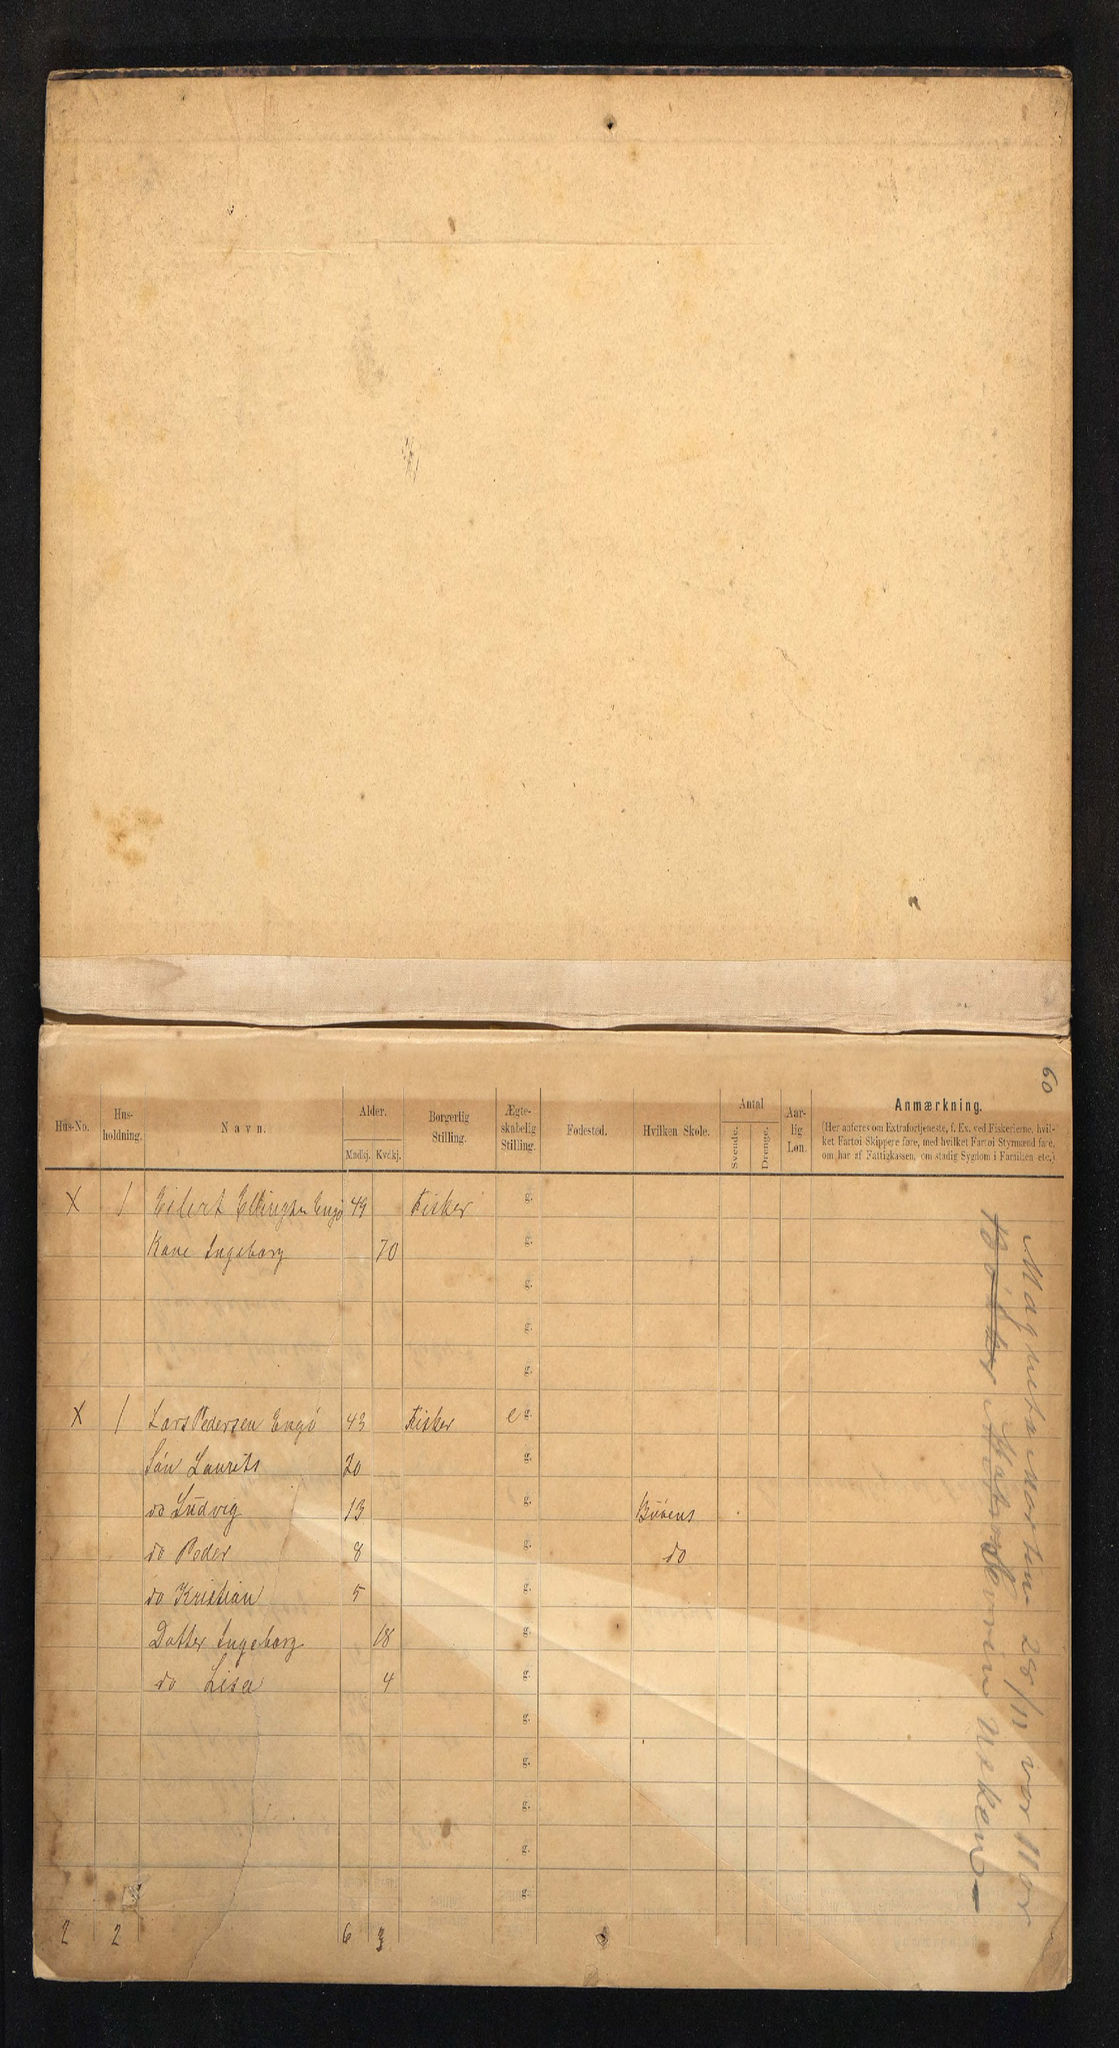 60
Hus-No. Hus-holdning. Navn. Alder. Mndkj. Kvdkj. Borgerlig Stilling. Ægte-skabelig Stilling. Fødested. Hvilken Skole. Antal Svende. Drenge. Aar-lig Løn. Anmærkning.
(Her anføres om Extrafortjeneste, f. Ex. ved Fiskerierne, hvil-
ket Fartøi Skippere føre, med hvilket Fartøi Styrmænd fare,
om har af Fattigkassen, om stadig Sygdom i Familien etc.)
X 1 Eilert Engø 49 Fisker g.
Kone Ingeborg 70 g.
g.
g.
g.
X 1 Lars Pedersen Engø 43 Fisker e g.
Søn Laurits 20 g.
do Ludvig 13 g. Buøens
do Peder 8 g. do
do Kristian 5 g.
Datter Ingeborg 18 g.
do Lisa 4 g.
g.
g.
g.
g.
g.
2 2 6 3
28/11